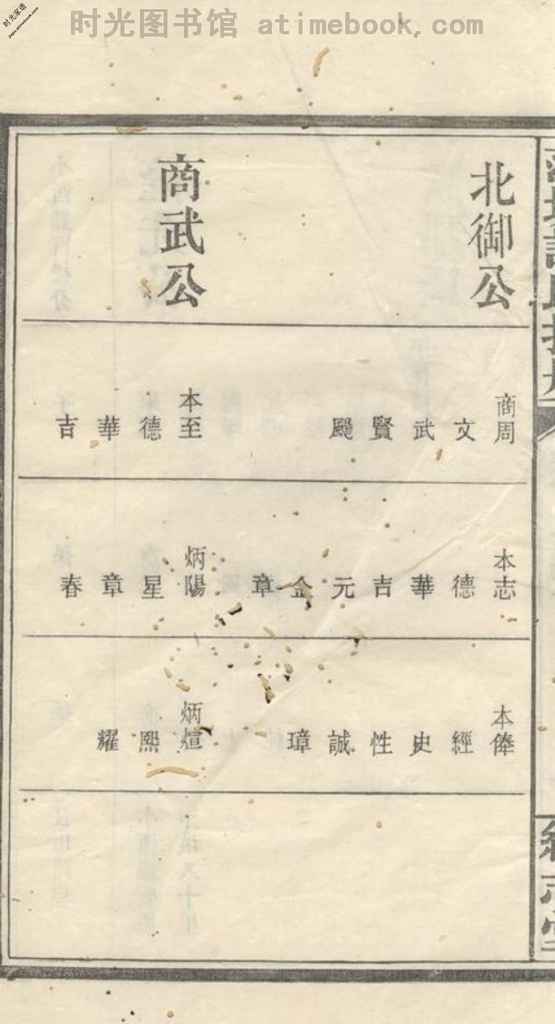 时光图书馆 atimebook.com
北御公
商周 文 武 賢 颺
本志 德 華 吉 元 金 章
本俸 經 史 性 誠 璋
商武公
本至 德 華 吉
炳陽 星 章 春
炳煊 熙 耀